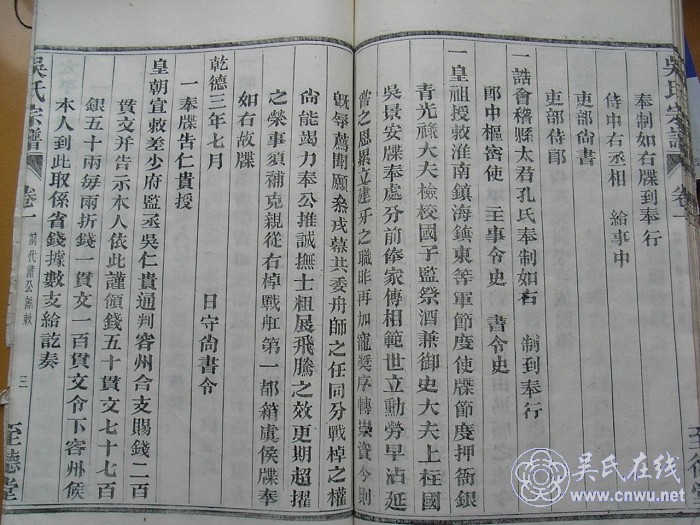 奉制如右牒到奉行
侍中右丞相　給事中
吏部尚書
吏部侍郎
一誥會稽縣太君孔氏奉制如右　制到奉行
郎中樞密使　主事令史　書令史
一皇祖授敕淮南鎮海鎮東等軍節度使牒節度押衙銀
青光祿大夫檢校國子監祭酒兼御史大夫上柱國
吳景安牒奉處分前件家傳相範世立勳勞早沾延
賞之恩累立建牙之職昨再加寵獎序轉崇資今則
既辱薦聞願叅戎幕共委舟師之任同分戰棹之權
尚能竭力奉公推誠撫士粗展飛騰之效更期超擢
之榮事須補克親從右棹戰舡第一都箱虞侯牒奉
如右故牒
乾德三年七月　　日守尚書令
一奉牒告仁貴授
皇朝宣敕差少府監丞吳仁貴通判容州合支賜錢二百
貫文并告示本人依此謹領錢五十貫文七十七百
銀五十兩每兩折錢一貫文一百貫文令下容州候
本人到此取係省錢據數支給訖奏
吳氏宗譜
卷一
前代蕭公誥敕
三
至德堂
吳氏宗譜
卷一
吴氏在线
www.cnwu.net